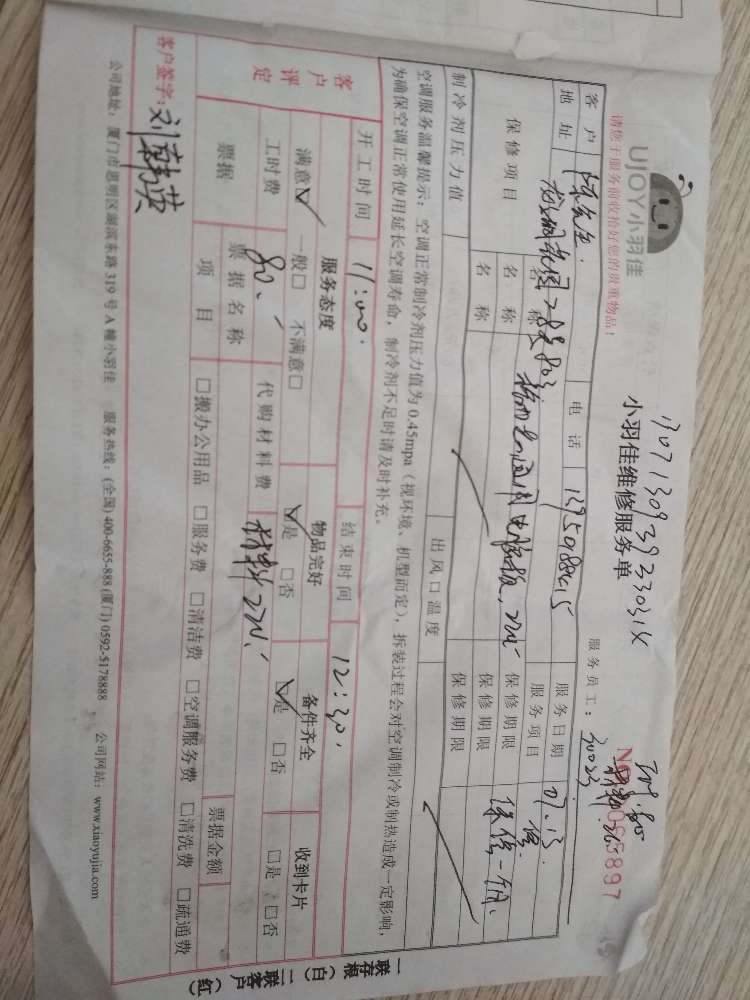 请您于服务前收拾好您的贵重物品！
UJOY小羽佳
小羽佳维修服务单
服务员工：
30023
客户 陈先生 电话 服务日期 07.13
地址 服务项目 修
保修项目 名称 保修期限 保修一个月
名称 保修期限
名称 保修期限
制冷剂压力值 出风口温度
空调服务温馨提示：空调正常制冷剂压力值为0.45mpa（视环境、机型而定），拆装过程会对空调制冷或制热造成一定影响，
为确保空调正常使用延长空调寿命，制冷剂不足时请及时补充。
开工时间 11:00 结束时间 12:30
客户评定 服务态度 物品完好 备件齐全 收到卡片
满意☑ 一般□ 不满意□ ☑是 □否 ☑是 □否 □是 □否
工时费 80 代购材料费 材料220
票据 票据名称 票据金额
项目 □搬办公用品 □服务费 □清洁费 □空调服务费 □清洗费 □疏通费
客户签字：
公司地址：厦门市思明区湖滨东路319号A幢小羽佳 服务热线：(全国) 400-6655-888 (厦门) 0592-5178888 公司网站：www.xiaoyujia.com
一联存根（白）二联客户（红）